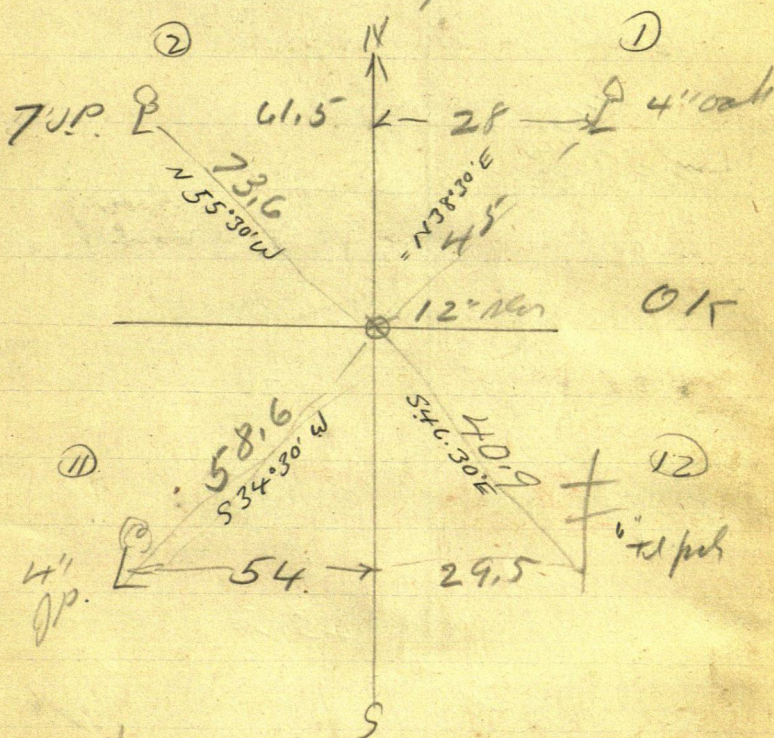 ② N ①
7" J.P. 61.5 28 4" oak
73.6
N 55°30' W
N 38°30' E
45
12" OK
58.6
S 34°30' W
40.9
S 46.30' E
⑪ ⑫
4" J.P. 54 29.5
S